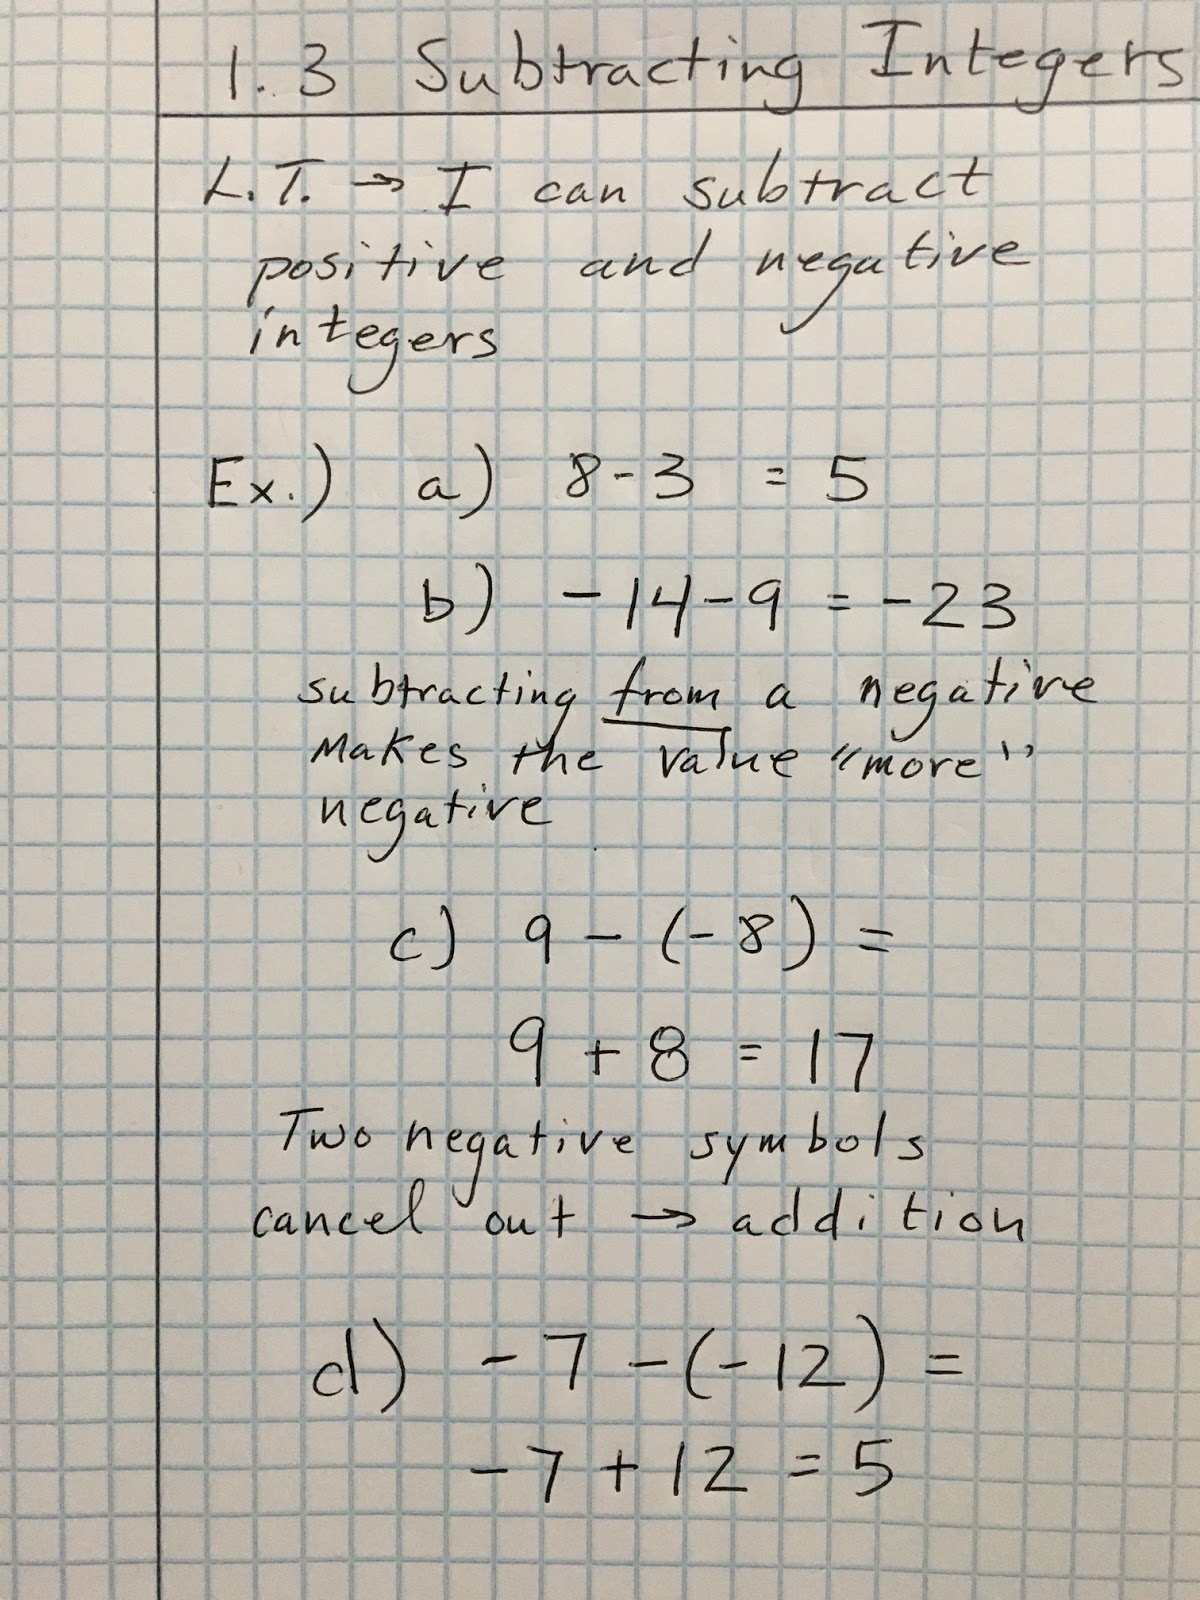 1.3 Subtracting Integers
L.T. → I can subtract
positive and negative
integers
Ex.) a) 8-3 = 5
b) -14-9 = -23
subtracting from a negative
makes the value "more"
negative
c) 9 - (-8) =
9 + 8 = 17
Two negative symbols
cancel out → addition
d) -7 -(-12) =
-7 + 12 = 5